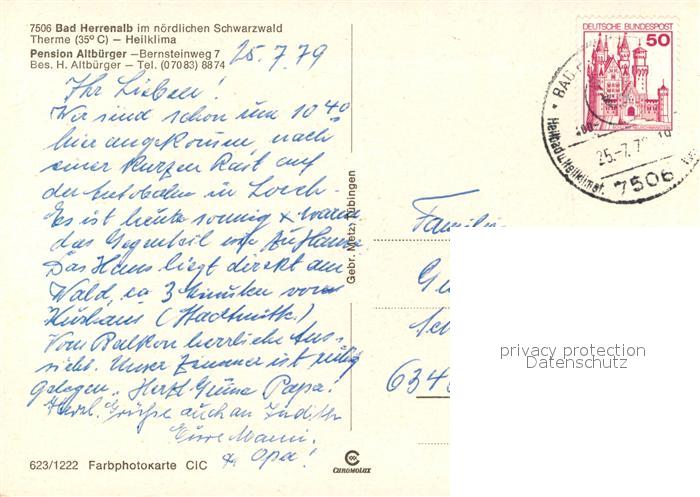 7506 Bad Herrenalb im nördlichen Schwarzwald
Therme (35° C) — Heilklima
Pension Altbürger —Bernsteinweg 7
Bes. H. Altbürger — Tel. (07083) 8874
25.7.79
Ihr Lieben!
Wir sind schon um 10 40
hier angekommen, nach
einer kurzen Rast auf
der Autobahn in Lorch.
Es ist heute sonnig + warm
das Gegenteil von zu Hause
Das Haus liegt direkt am
Wald, ca 3 Minuten vom
Kurhaus (Stadtmitte.)
Vom Balkon herrliche Aus-
sicht. Unser Zimmer ist ruhig
gelegen. Herzl. Grüße Papa!
Herzl. Grüße auch an Judith
Eure Mami.
+ Opa!
623/1222 Farbphotokarte CIC
CHROMOLUX
Gebr. Metz, Tübingen
DEUTSCHE BUNDESPOST
50
BAD
Heilbad u. Heilklimat.
25.-7.79
7506
Familie
634
privacy protection
Datenschutz